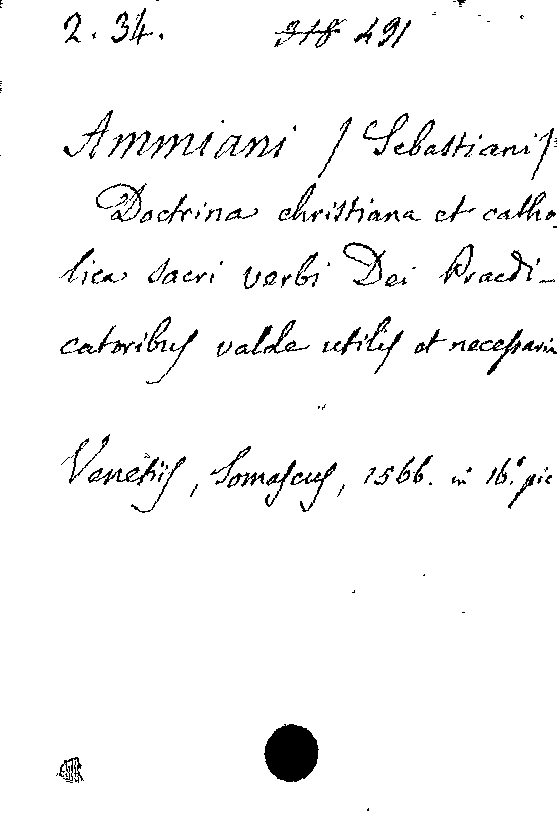 2. 34. 318 491
Ammiani / Sebastiani /
Doctrina christiana et catho-
lica sacri verbi Dei Praedi-
catoribus valde utilis et necessaria
Venetiis, Somascus, 1566. in 16.° pic